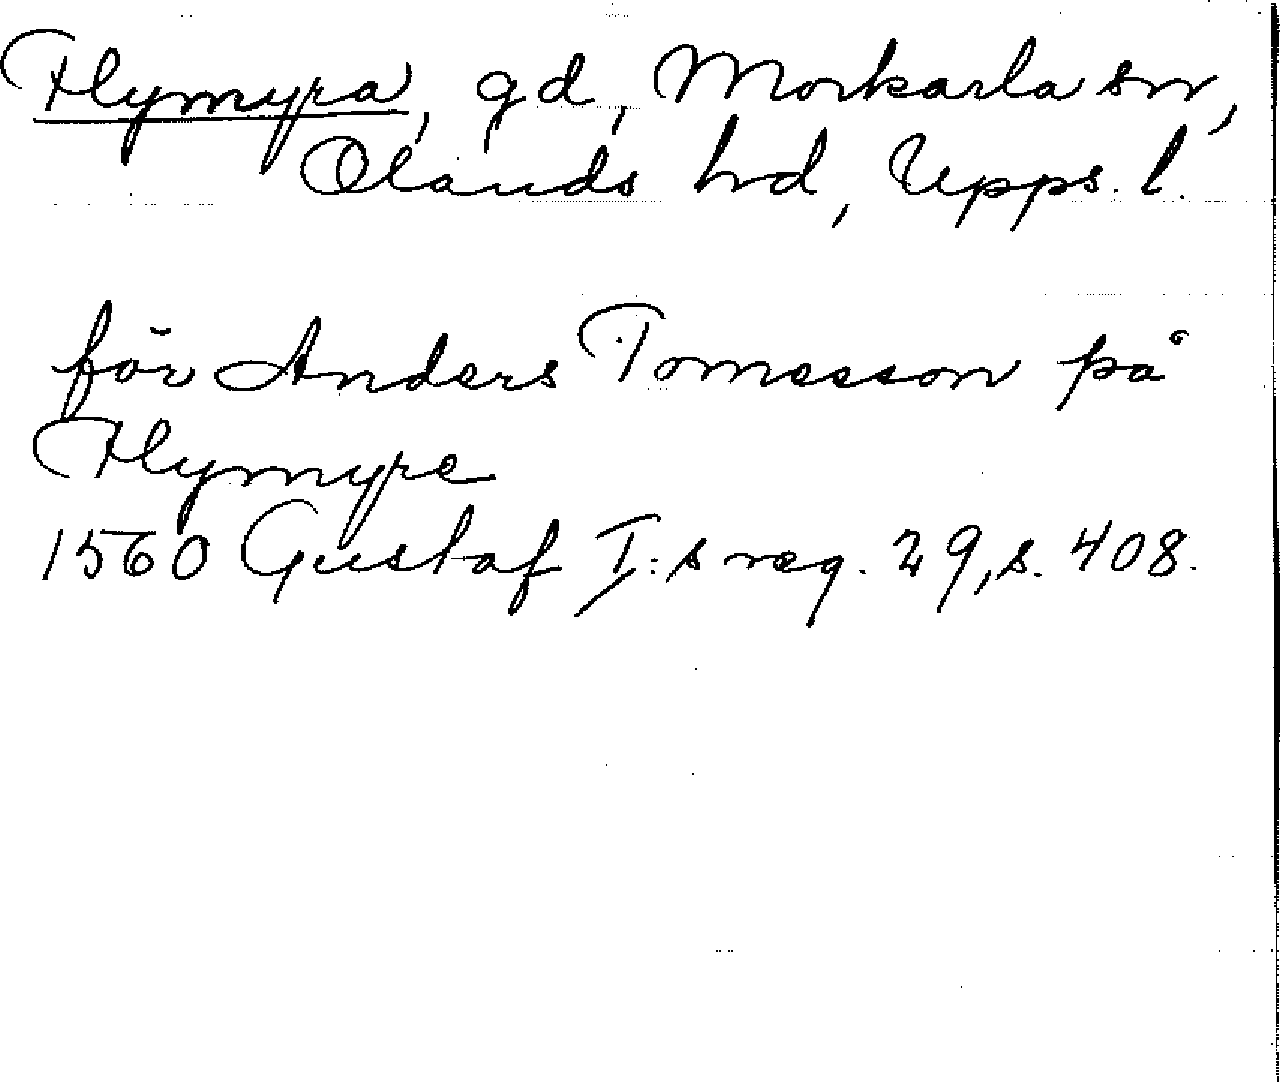 Flymyra, gd, Morkarla sn,
Olands hd, Upps. l.
för Anders Tomesson på
Flymyre
1560 Gustaf I:s reg. 29, s. 408.